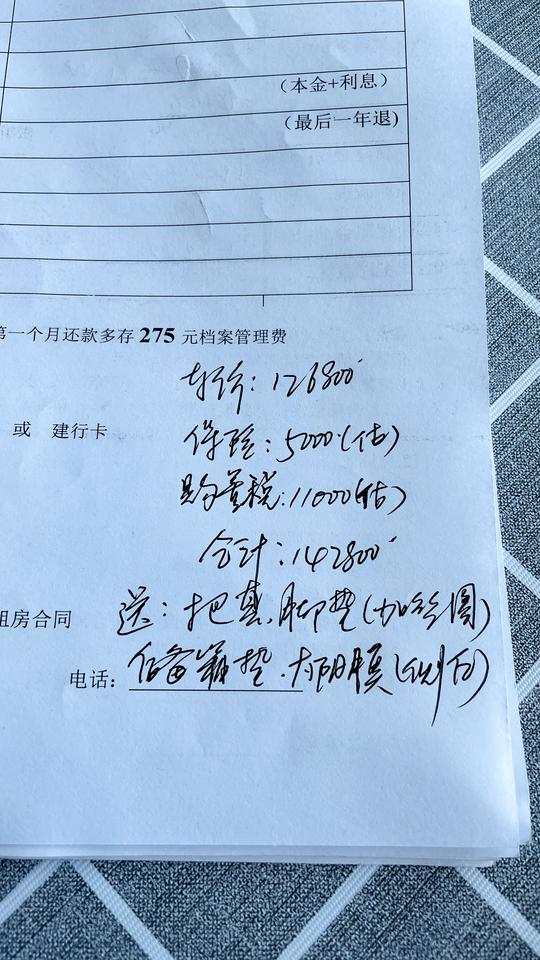 （本金+利息）
（最后一年退)
第一个月还款多存 275 元档案管理费
车价：126800
或 建行卡
保险：5000(估)
购置税:11000(估)
合计：142800
租房合同
送：把套、脚垫(加丝圈)
电话：
后备箱垫.太阳膜(